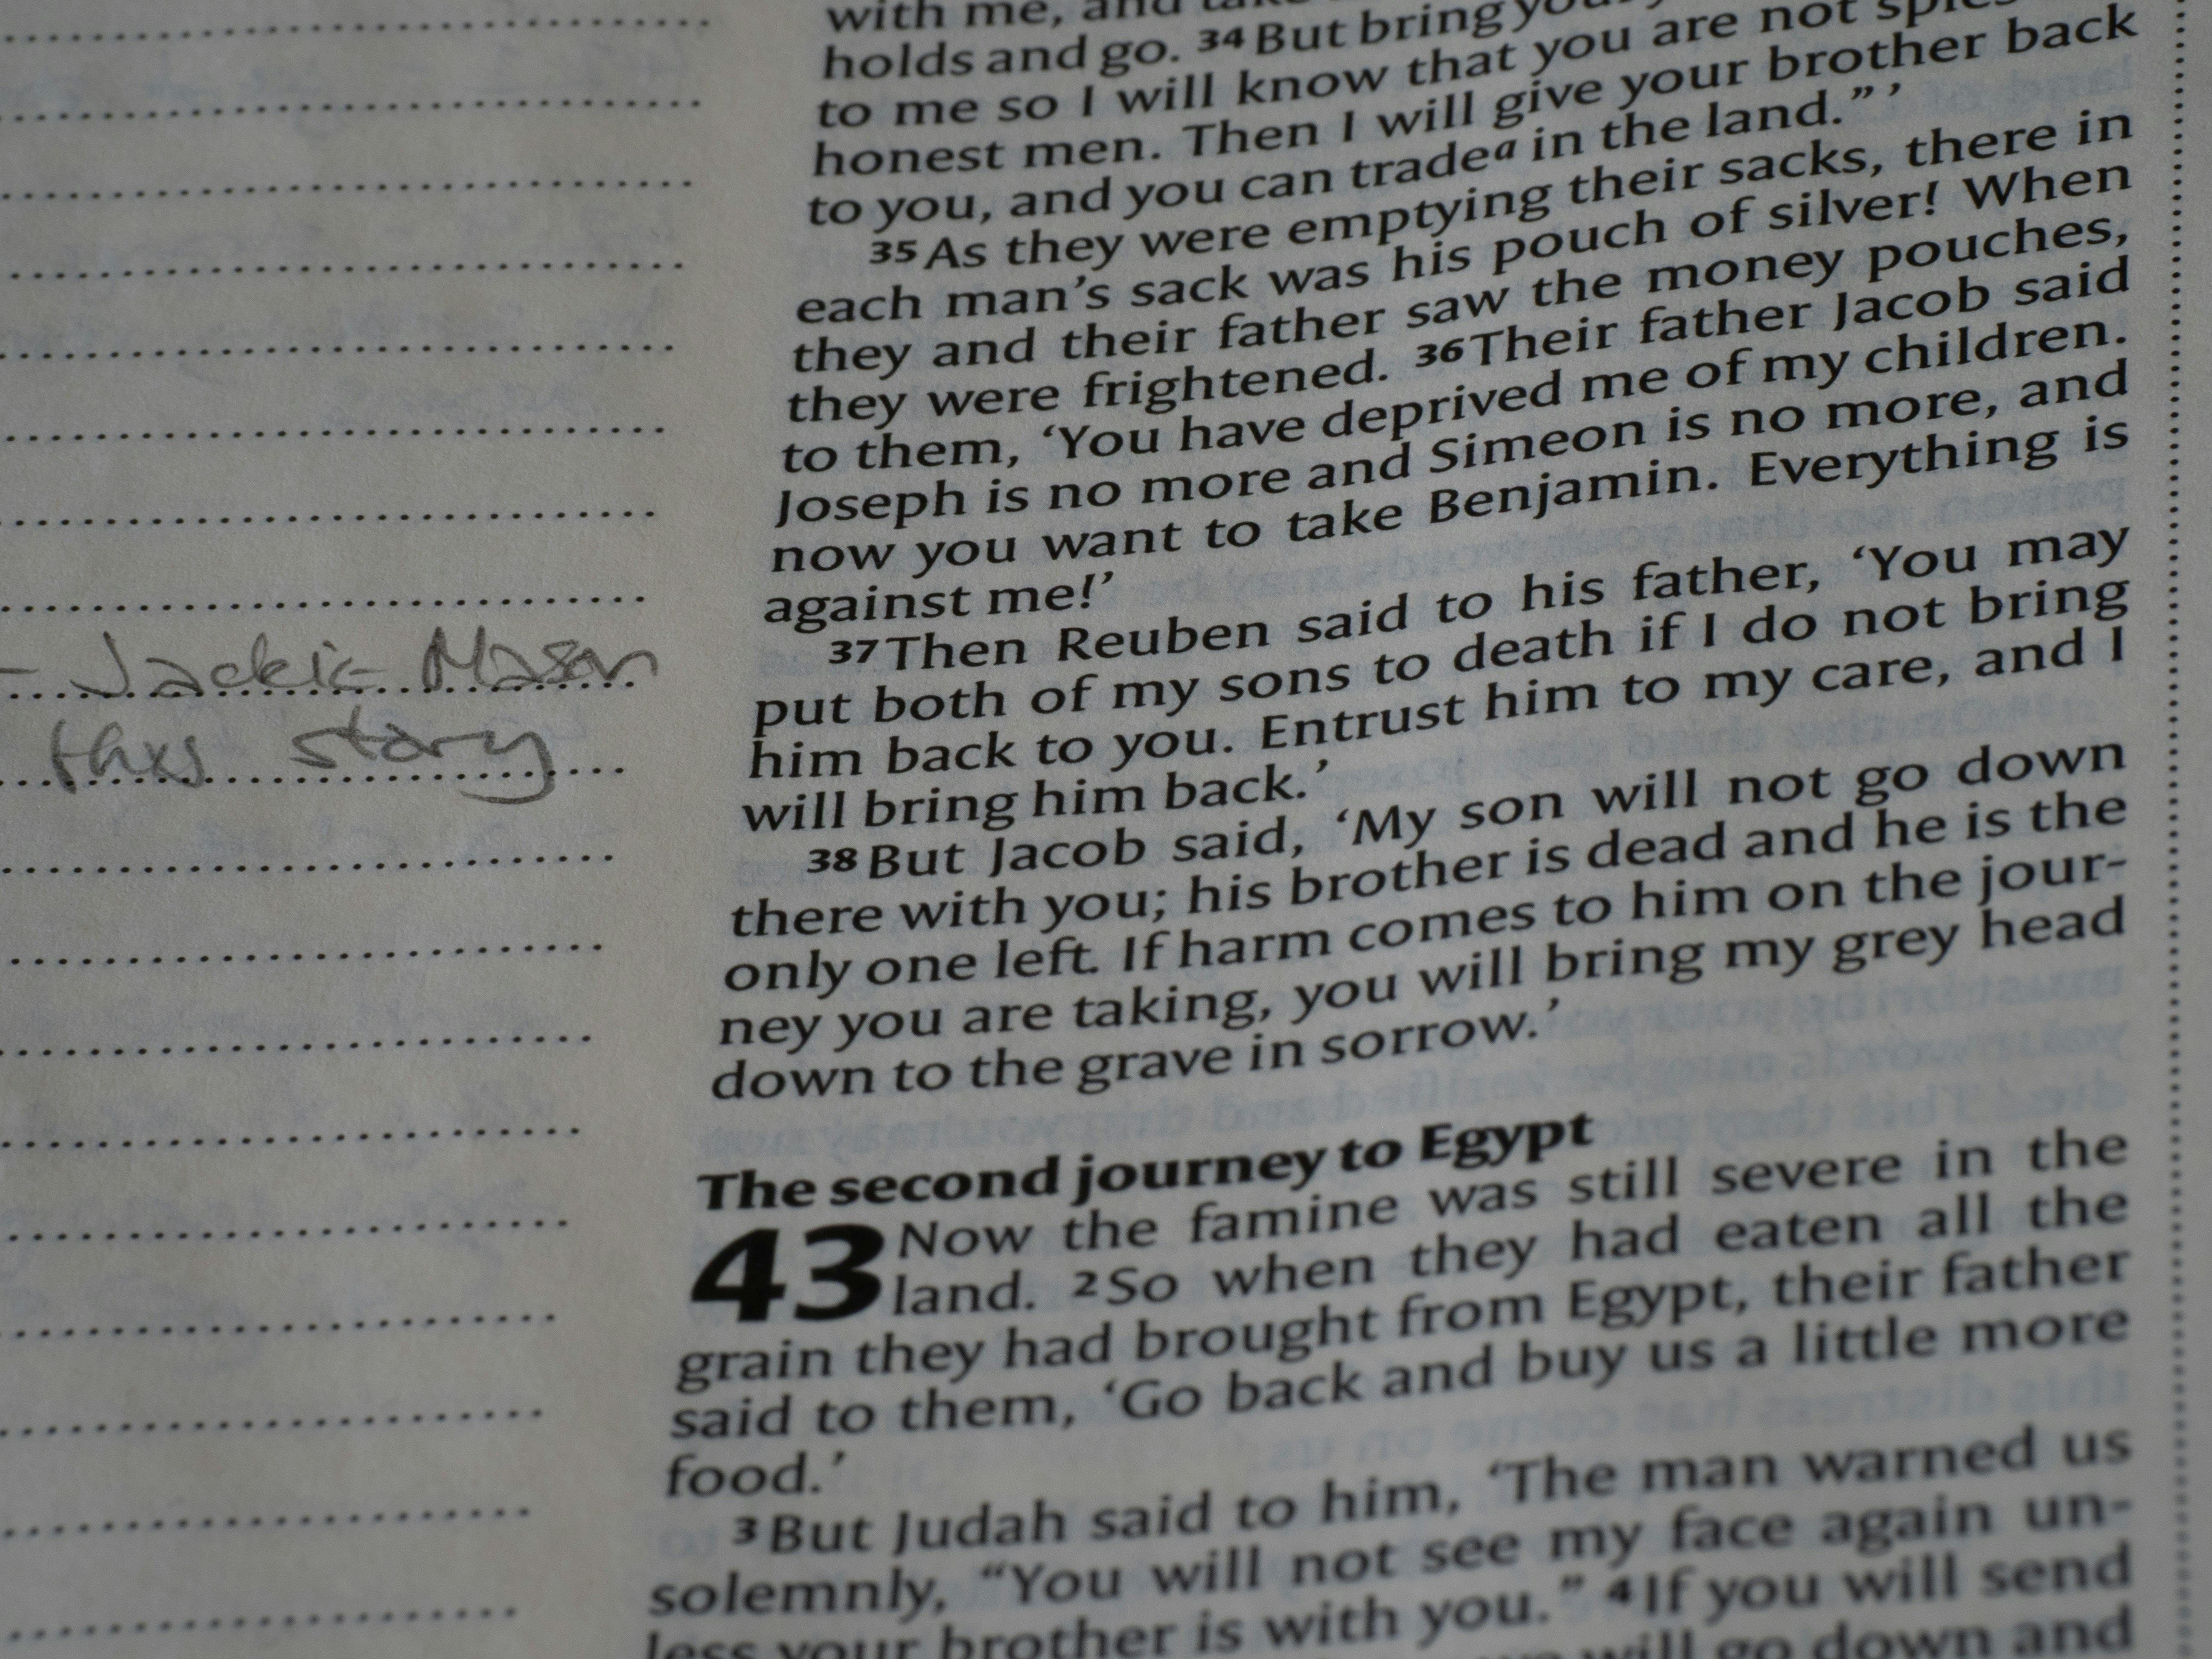 with me, and
holds and go. 34 But bring
to me so I will know that you are not
honest men. Then I will give your brother back
to you, and you can trade a in the land.” ’
35 As they were emptying their sacks, there in
each man’s sack was his pouch of silver! When
they and their father saw the money pouches,
they were frightened. 36 Their father Jacob said
to them, ‘You have deprived me of my children.
Joseph is no more and Simeon is no more, and
now you want to take Benjamin. Everything is
against me!’
37 Then Reuben said to his father, ‘You may
put both of my sons to death if I do not bring
him back to you. Entrust him to my care, and I
will bring him back.’
38 But Jacob said, ‘My son will not go down
there with you; his brother is dead and he is the
only one left. If harm comes to him on the jour-
ney you are taking, you will bring my grey head
down to the grave in sorrow.’
The second journey to Egypt
43 Now the famine was still severe in the
land. 2 So when they had eaten all the
grain they had brought from Egypt, their father
said to them, ‘Go back and buy us a little more
food.’
3 But Judah said to him, ‘The man warned us
solemnly, “You will not see my face again un-
less your brother is with you.” 4 If you will send
will go down and
- Jackie Mason
this story